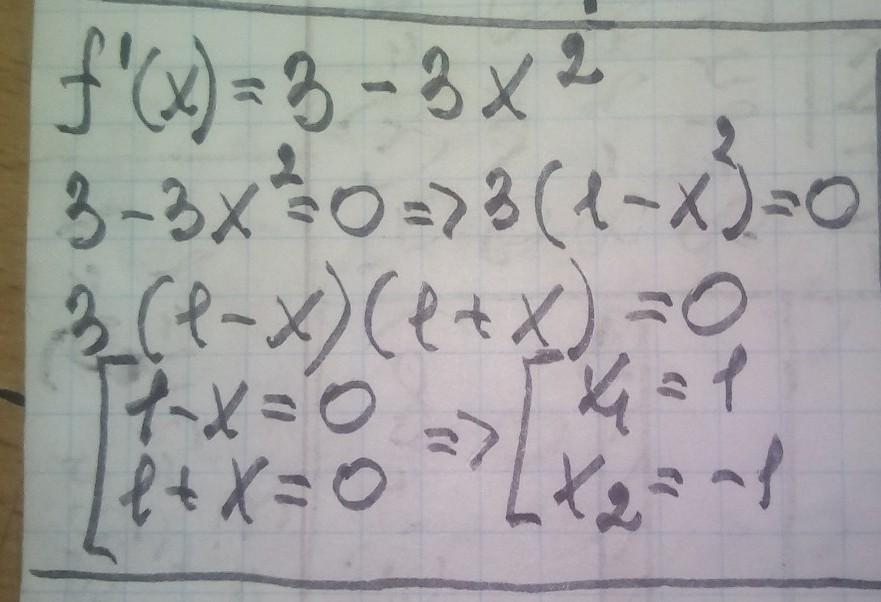 f'(x) = 3 - 3x²
3 - 3x² = 0 => 3(1 - x²) = 0
3(1 - x)(1 + x) = 0
[1 - x = 0 => [x₁ = 1
[1 + x = 0 [x₂ = -1